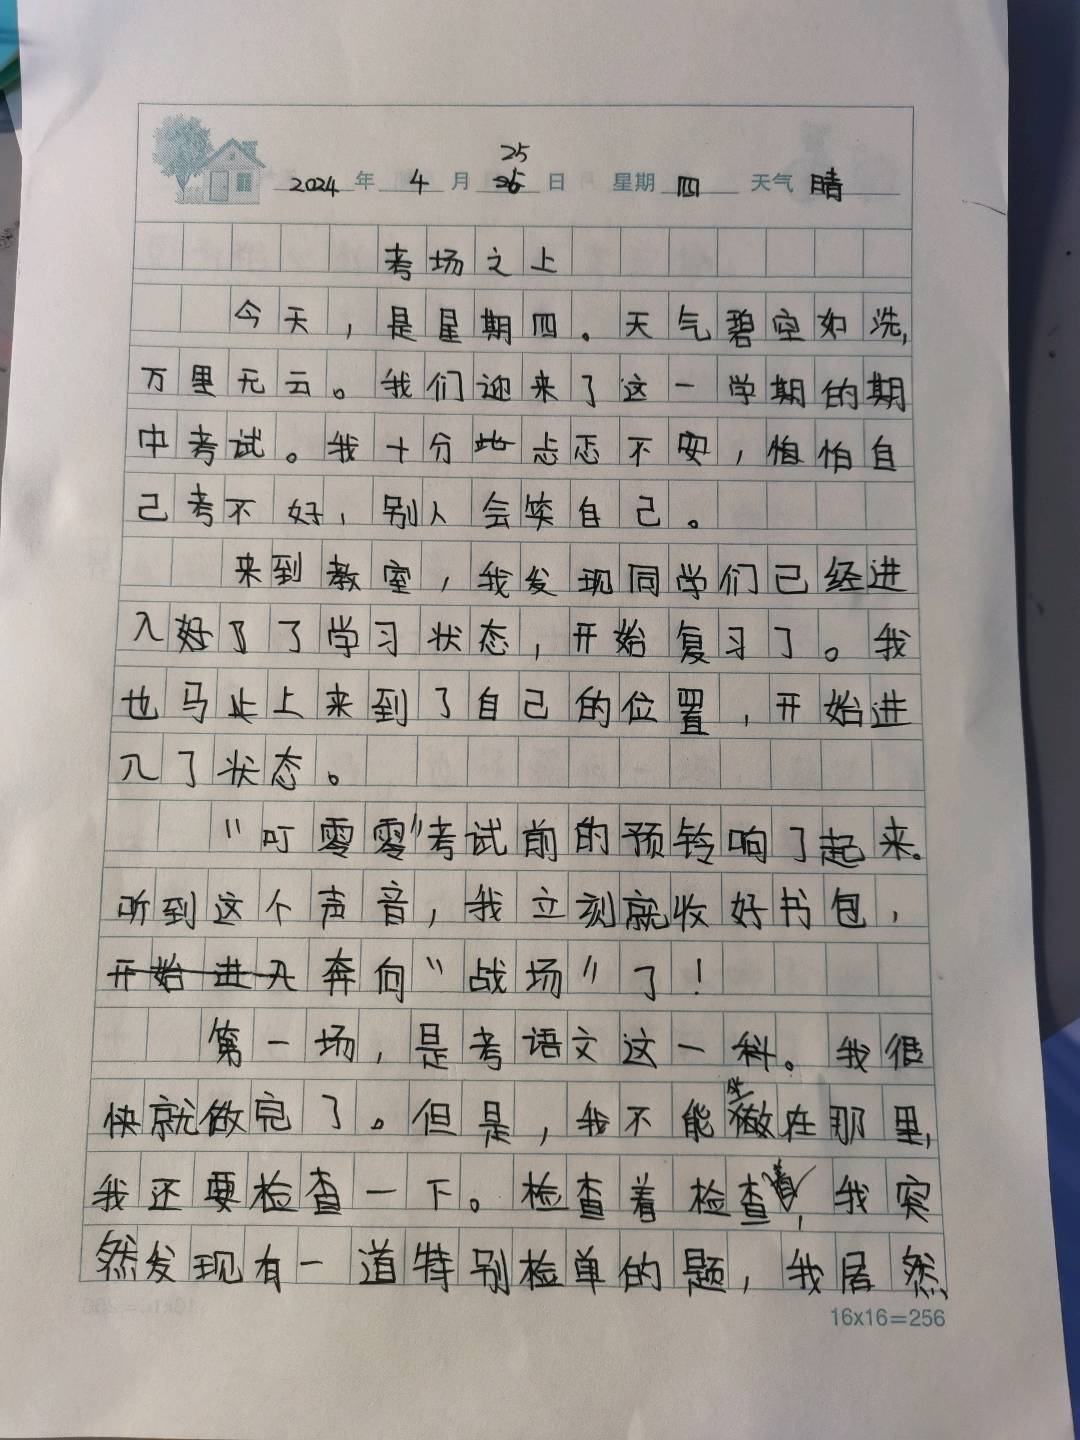 25
2024年 4月 26日 星期 四 天气 晴
考场之上
今天，是星期四。天气碧空如洗，
万里无云。我们迎来了这一学期的期
中考试。我十分地忐忑不安，惟怕自
己考不好，别人会笑自己。
来到教室，我发现同学们已经进
入好了了学习状态，开始复习了。我
也马止上来到了自己的位置，开始进
入了状态。
“叮零零”考试前的预铃响了起来。
听到这个声音，我立刻就收好书包，
开始进入奔向“战场”了！
第一场，是考语文这一科。我很
快就做完了。但是，我不能坐做在那里，
我还要检查一下。检查着检查着，我突
然发现有一道特别检单的题，我居然
16x16=256